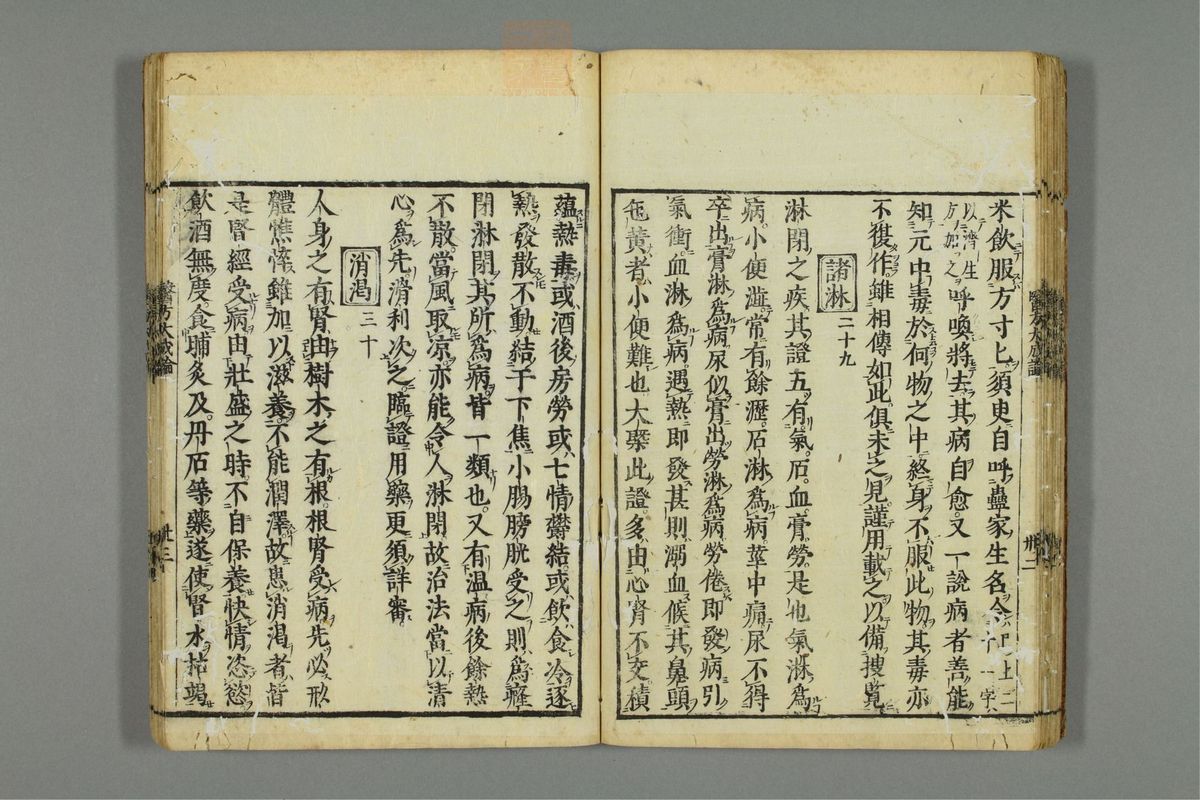 米飲服方寸匕須臾自呼蠱家生名
以濟生
方加之呼喚將去其病自愈又一說病者善能
知元中毒於何物之中終身不服此物其毒亦
不復作雖相傳如此俱未之見謹用載之以備搜覓
諸淋 二十九
淋閉之疾其證五有氣石血膏勞是也氣淋爲
病小便澁常有餘瀝石淋爲病莖中痛尿不得
卒出膏淋爲病尿似膏出勞淋爲病勞倦即發病引
氣衝血淋爲病遇熱即發甚則溺血候其鼻頭
色黃者小便難也大槩此證多由心腎不交積
蘊熱毒或酒後房勞或七情鬱結或飲食冷逐
熱發散不動結于下焦小腸膀胱受之則爲癃
閉淋閉其所爲病皆一類也又有温病後餘熱
不散當風取凉亦能令人淋閉故治法當以清
心爲先滑利次之臨證用藥更須詳審
消渇 三十
人身之有腎由樹木之有根根腎受病先必形
體憔悴雖加以滋養不能潤澤故患消渇者皆
是腎經受病由壯盛之時不自保養快情恣慾
飲酒無度食脯炙及丹石等藥遂使腎水枯竭